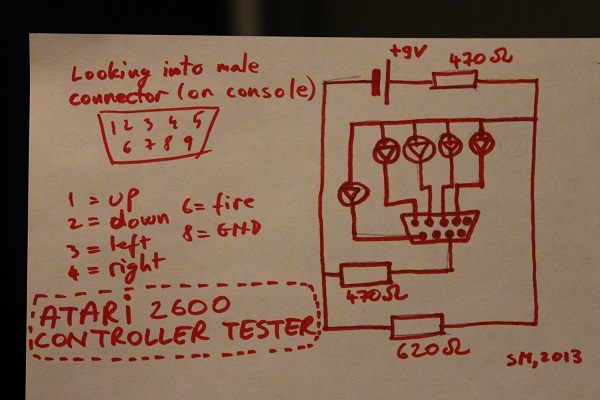 Looking into male
connector (on console)
1 2 3 4 5
6 7 8 9
1 = up
2 = down
3 = left
4 = right
6 = fire
8 = GND
ATARI 2600
CONTROLLER TESTER
+9V
470Ω
470Ω
620Ω
SM, 2013